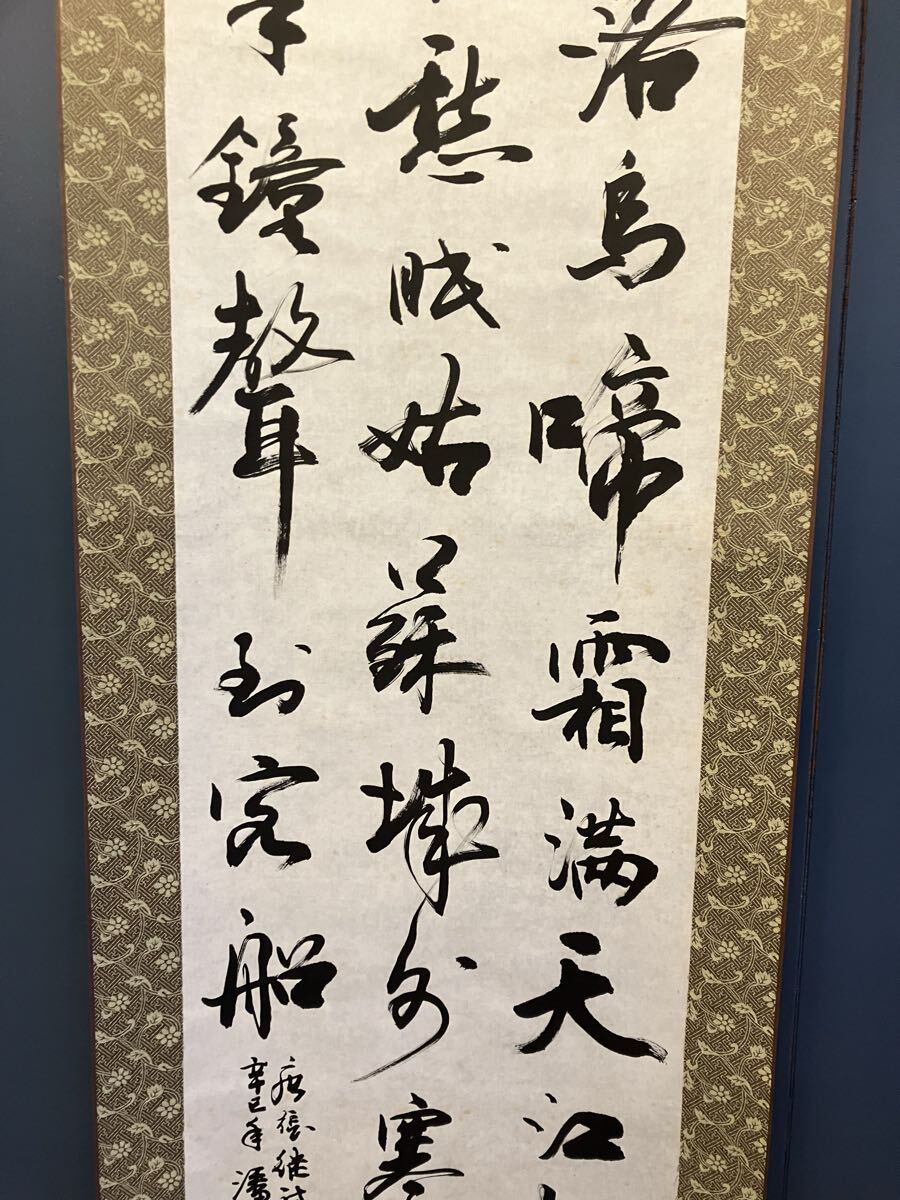 落烏啼霜滿天江
愁眠姑蘇城外寒
半鐘聲到客船
唐張继詩
辛巳年潘